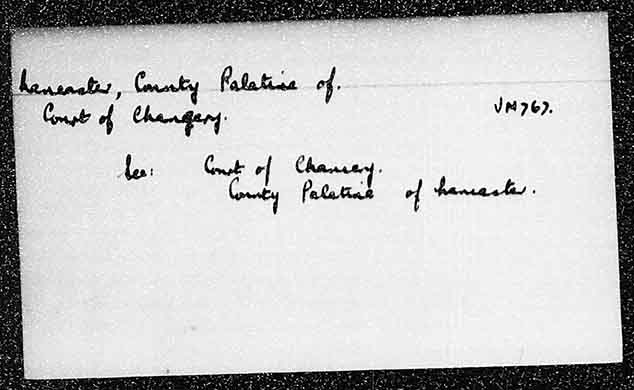 Lancaster, County Palatine of.
Court of Chancery.
VN767.
See: Court of Chancery.
County Palatine of Lancaster.